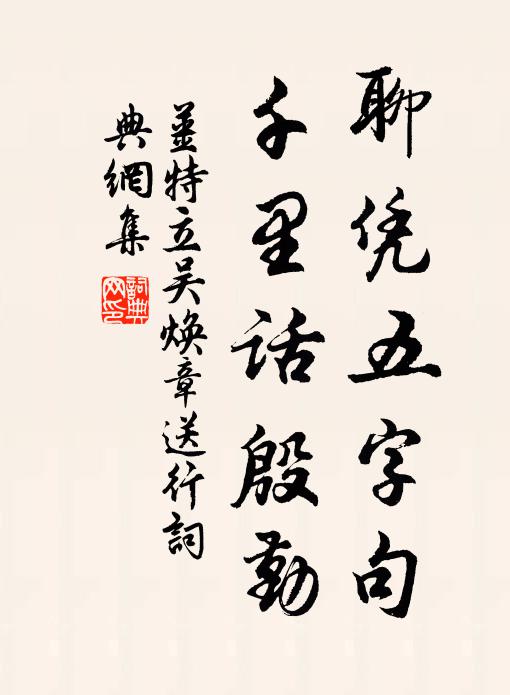 聊凭五字句
千里话殷勤
薑特立吴焕章送行詞
典網集
詞典网印